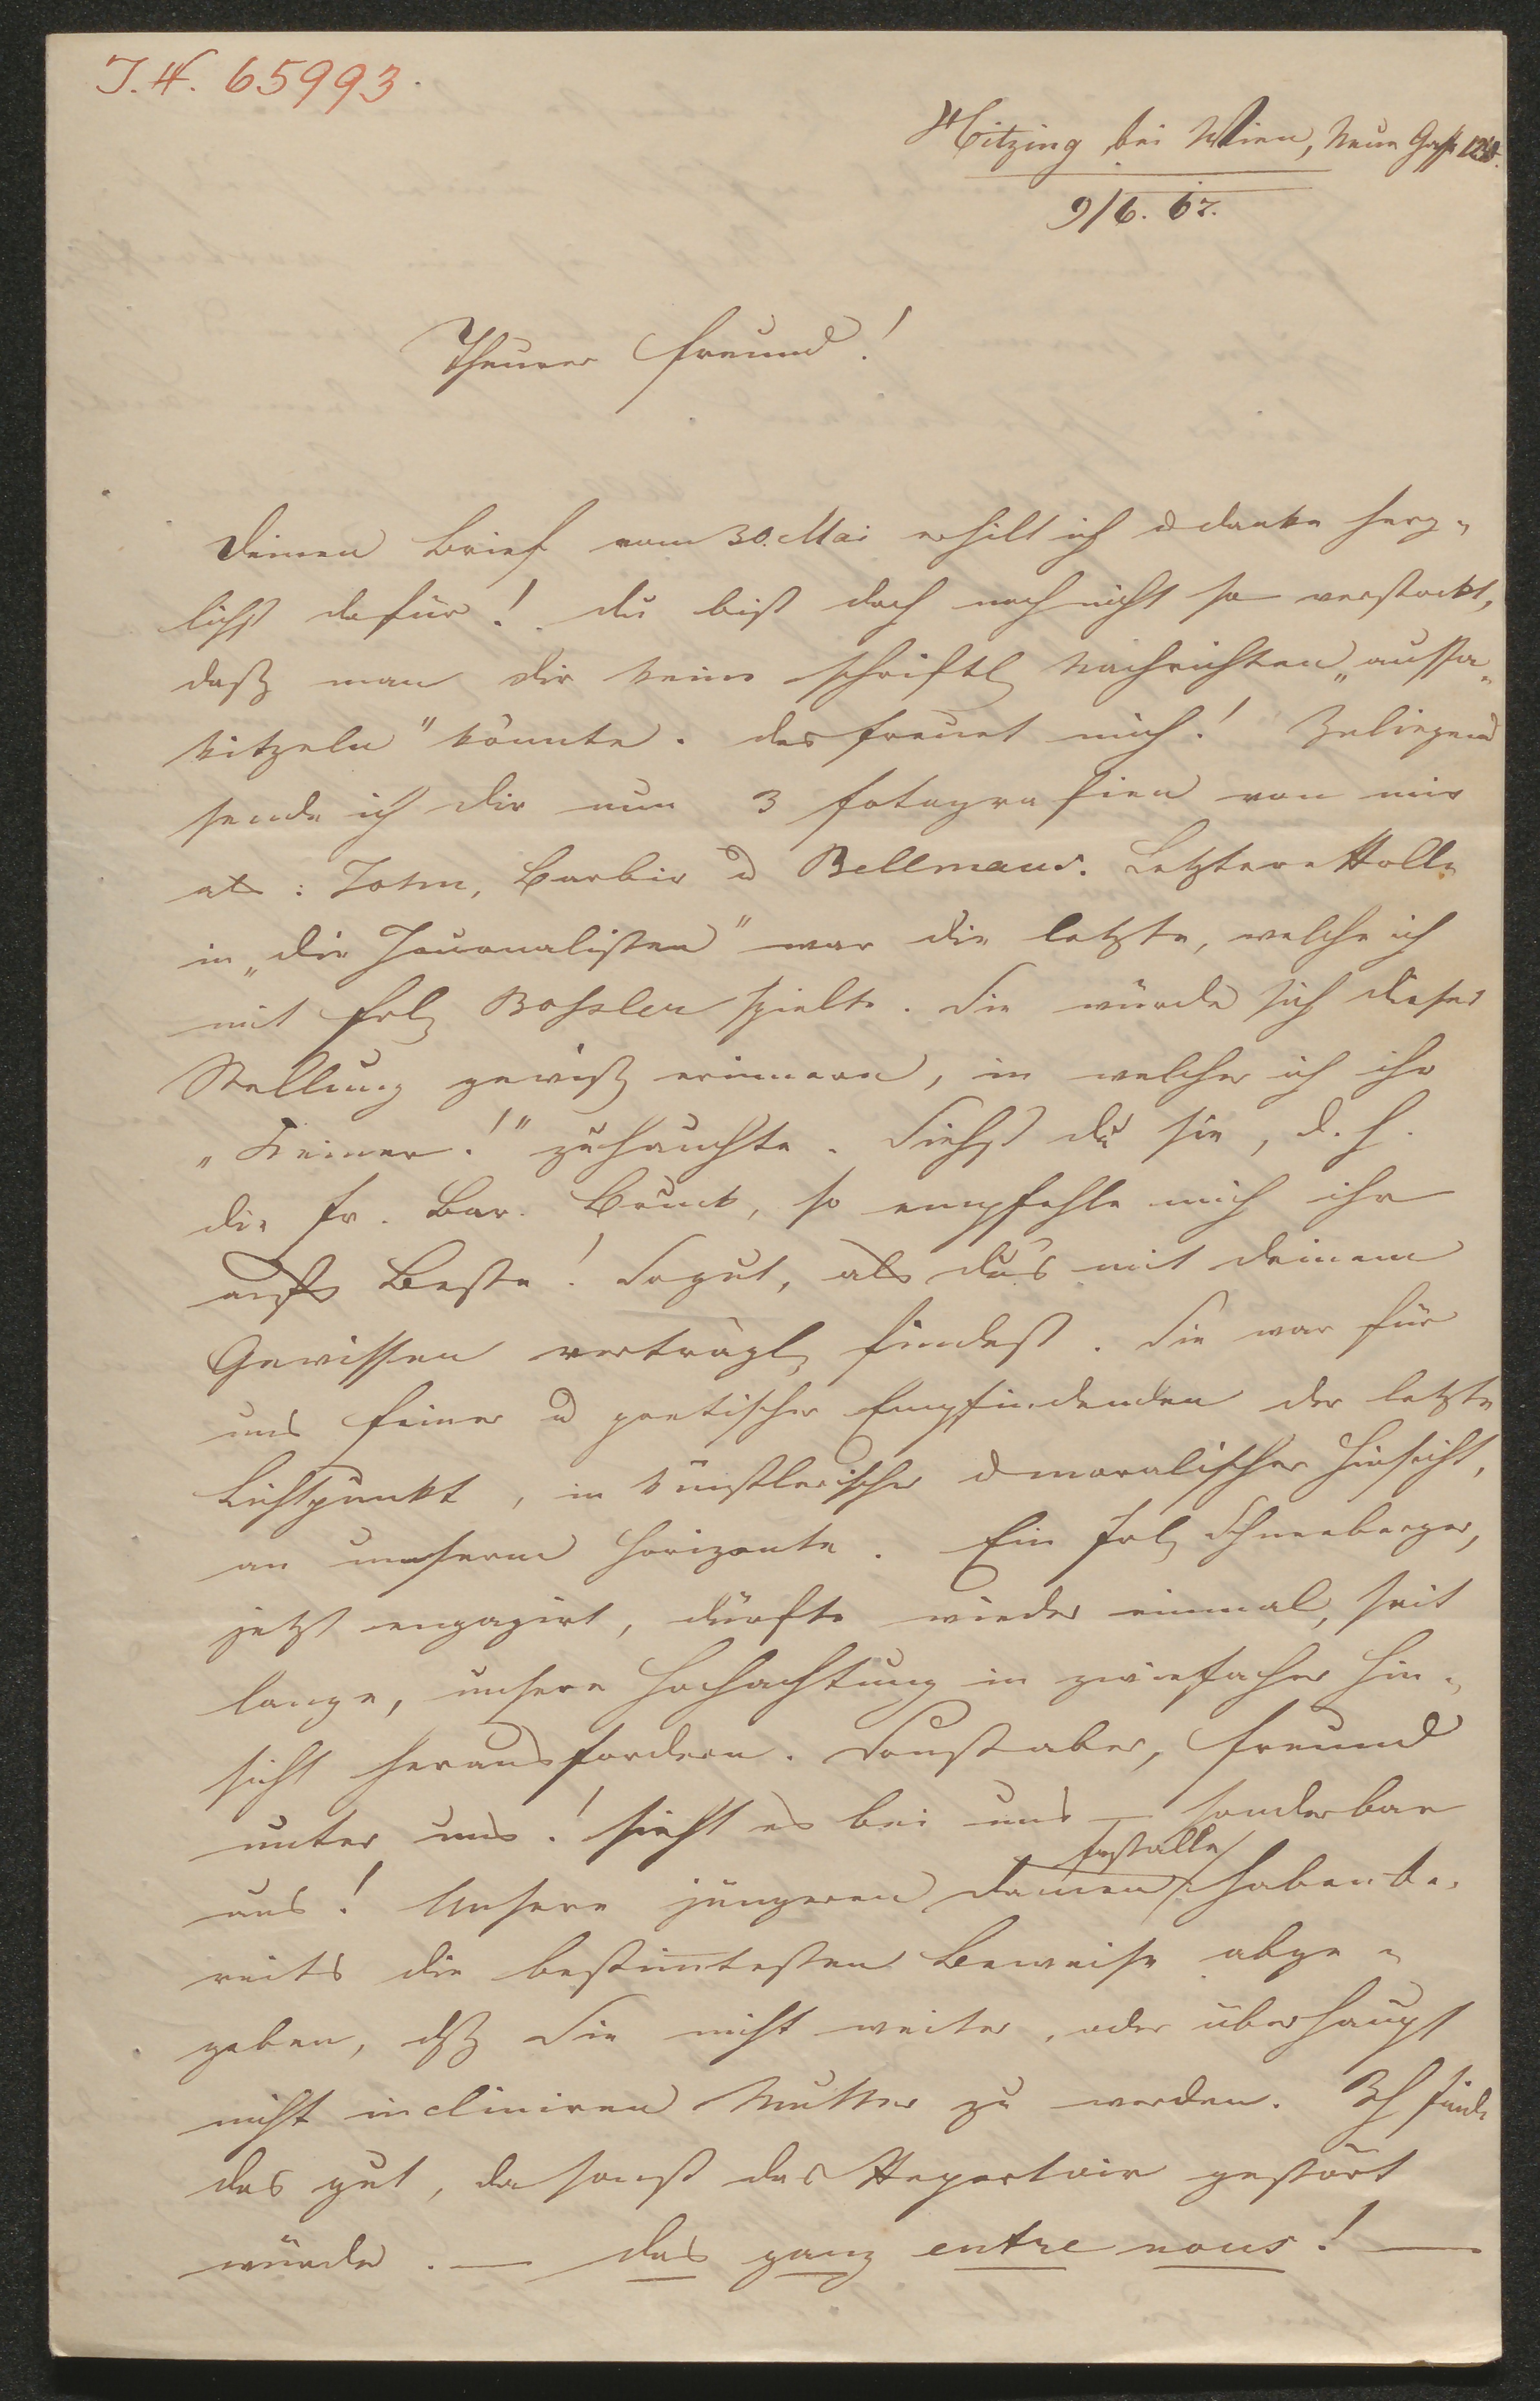 I.N. 65993.
Hitzing bei Wien, Neue Gasse
9/6. 67.
Theurer Freund!
Deinen Brief vom 30. Mai erhielt ich u danke herz-
lichst dafür! Du bist doch noch nicht so verstockt,
daß man Dir keine schriftl Nachrichten „aussa-
kitzeln" könnte. Das freuet mich! Beliegend
sende ich Dir nun 3 Fotografien von mir
als: John, Barbier u Bellmaus. Letztere Rolle
in „die Journalisten" war die letzte, welche ich
mit Frl Boßler spielte. Sie würde sich dieser
Stellung gewiß erinnern, in welcher ich ihr
„Keiner!" zuhauchte. Siehst du sie, d. h.
die Fr. Bar. Bruck, so empfehle mich ihr
aufs Beste! Sogut, als du's mit Deinem
Gewissen verträgl findest. Sie war für
uns feiner u poetischer Empfindenden der letzte
Lichtpunkt, in künstlerischer u moralischer Hinsicht,
an unserm Horizonte. Ein Frl Schneeberger,
jetzt engagirt, dürfte wieder einmal, seit
lange, unsere Hochachtung in zwiefacher Hin-
sicht herausfordern. Sonst aber, Freund
unter uns! sieht es bei uns – sonderbar
aus! Unsere jüngeren Damen fast alle haben be-
reits die bestimtesten Beweise abge-
geben, dß Sie nicht weiter, oder überhaupt
nicht incliniren Mutter zu werden. Ich finde
das gut, da sonst das Repertoir gestört
würde. — das ganz entre nous! —